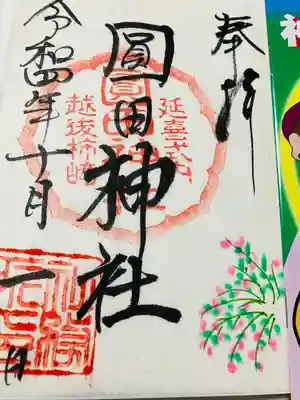 奉拝
延喜式
圓田神社
越後柿崎
令和四年十月一日